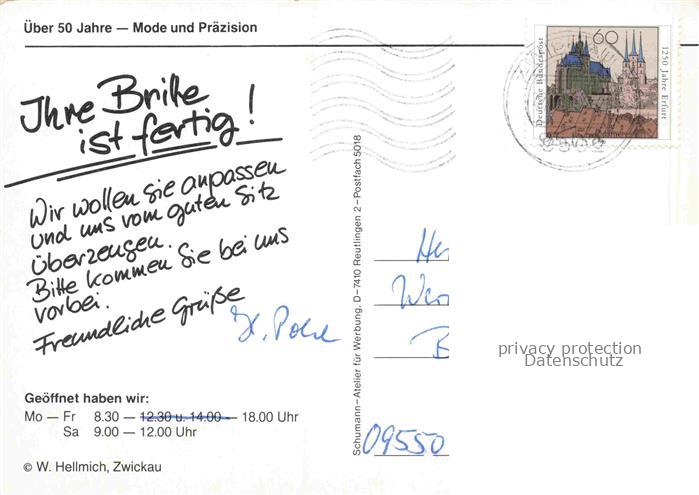 Über 50 Jahre — Mode und Präzision
Ihre Brille
ist fertig!
Wir wollen sie anpassen
und uns vom guten Sitz
überzeugen.
Bitte kommen Sie bei uns
vorbei.
Freundliche Grüße
Geöffnet haben wir:
Mo — Fr 8.30 — 12.30 u. 14.00 — 18.00 Uhr
Sa 9.00 — 12.00 Uhr
© W. Hellmich, Zwickau
Schumann–Atelier für Werbung, D–7410 Reutlingen 2–Postfach 5018
Deutsche Bundespost
60
1250 Jahre Erfurt
He
We
B
09550
privacy protection
Datenschutz